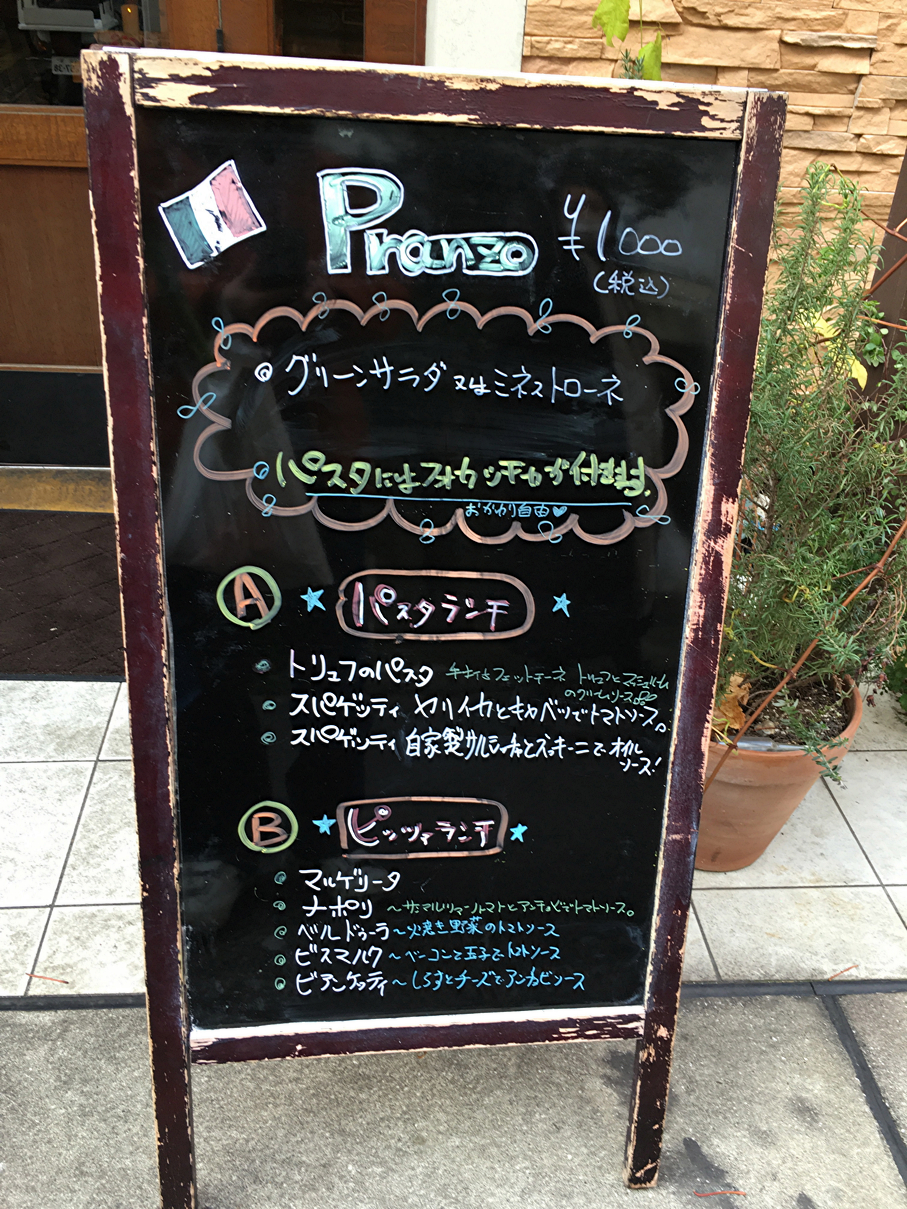 Pranzo ¥1000
(税込)
グリーンサラダ 又は ミネストローネ
パスタにはフォカッチャが付きます。
おかわり自由♥
A ★ パスタランチ ★
トリュフのパスタ
トリュフとマッシュルーム
のクリームソース
スパゲッティ ヤリイカとキャベツでトマトソース。
スパゲッティ 自家製サルシッチャとズッキーニでオイル
ソース!
B ★ ピッツァランチ ★
マルゲリータ
ナポリ ～サンマルツァーノトマトとアンチョビでトマトソース。
ベルドゥーラ～火焼き野菜のトマトソース
ビスマルク ～ベーコンと玉子でトマトソース
ビアンケッティ～しらすとチーズでアンチョビソース